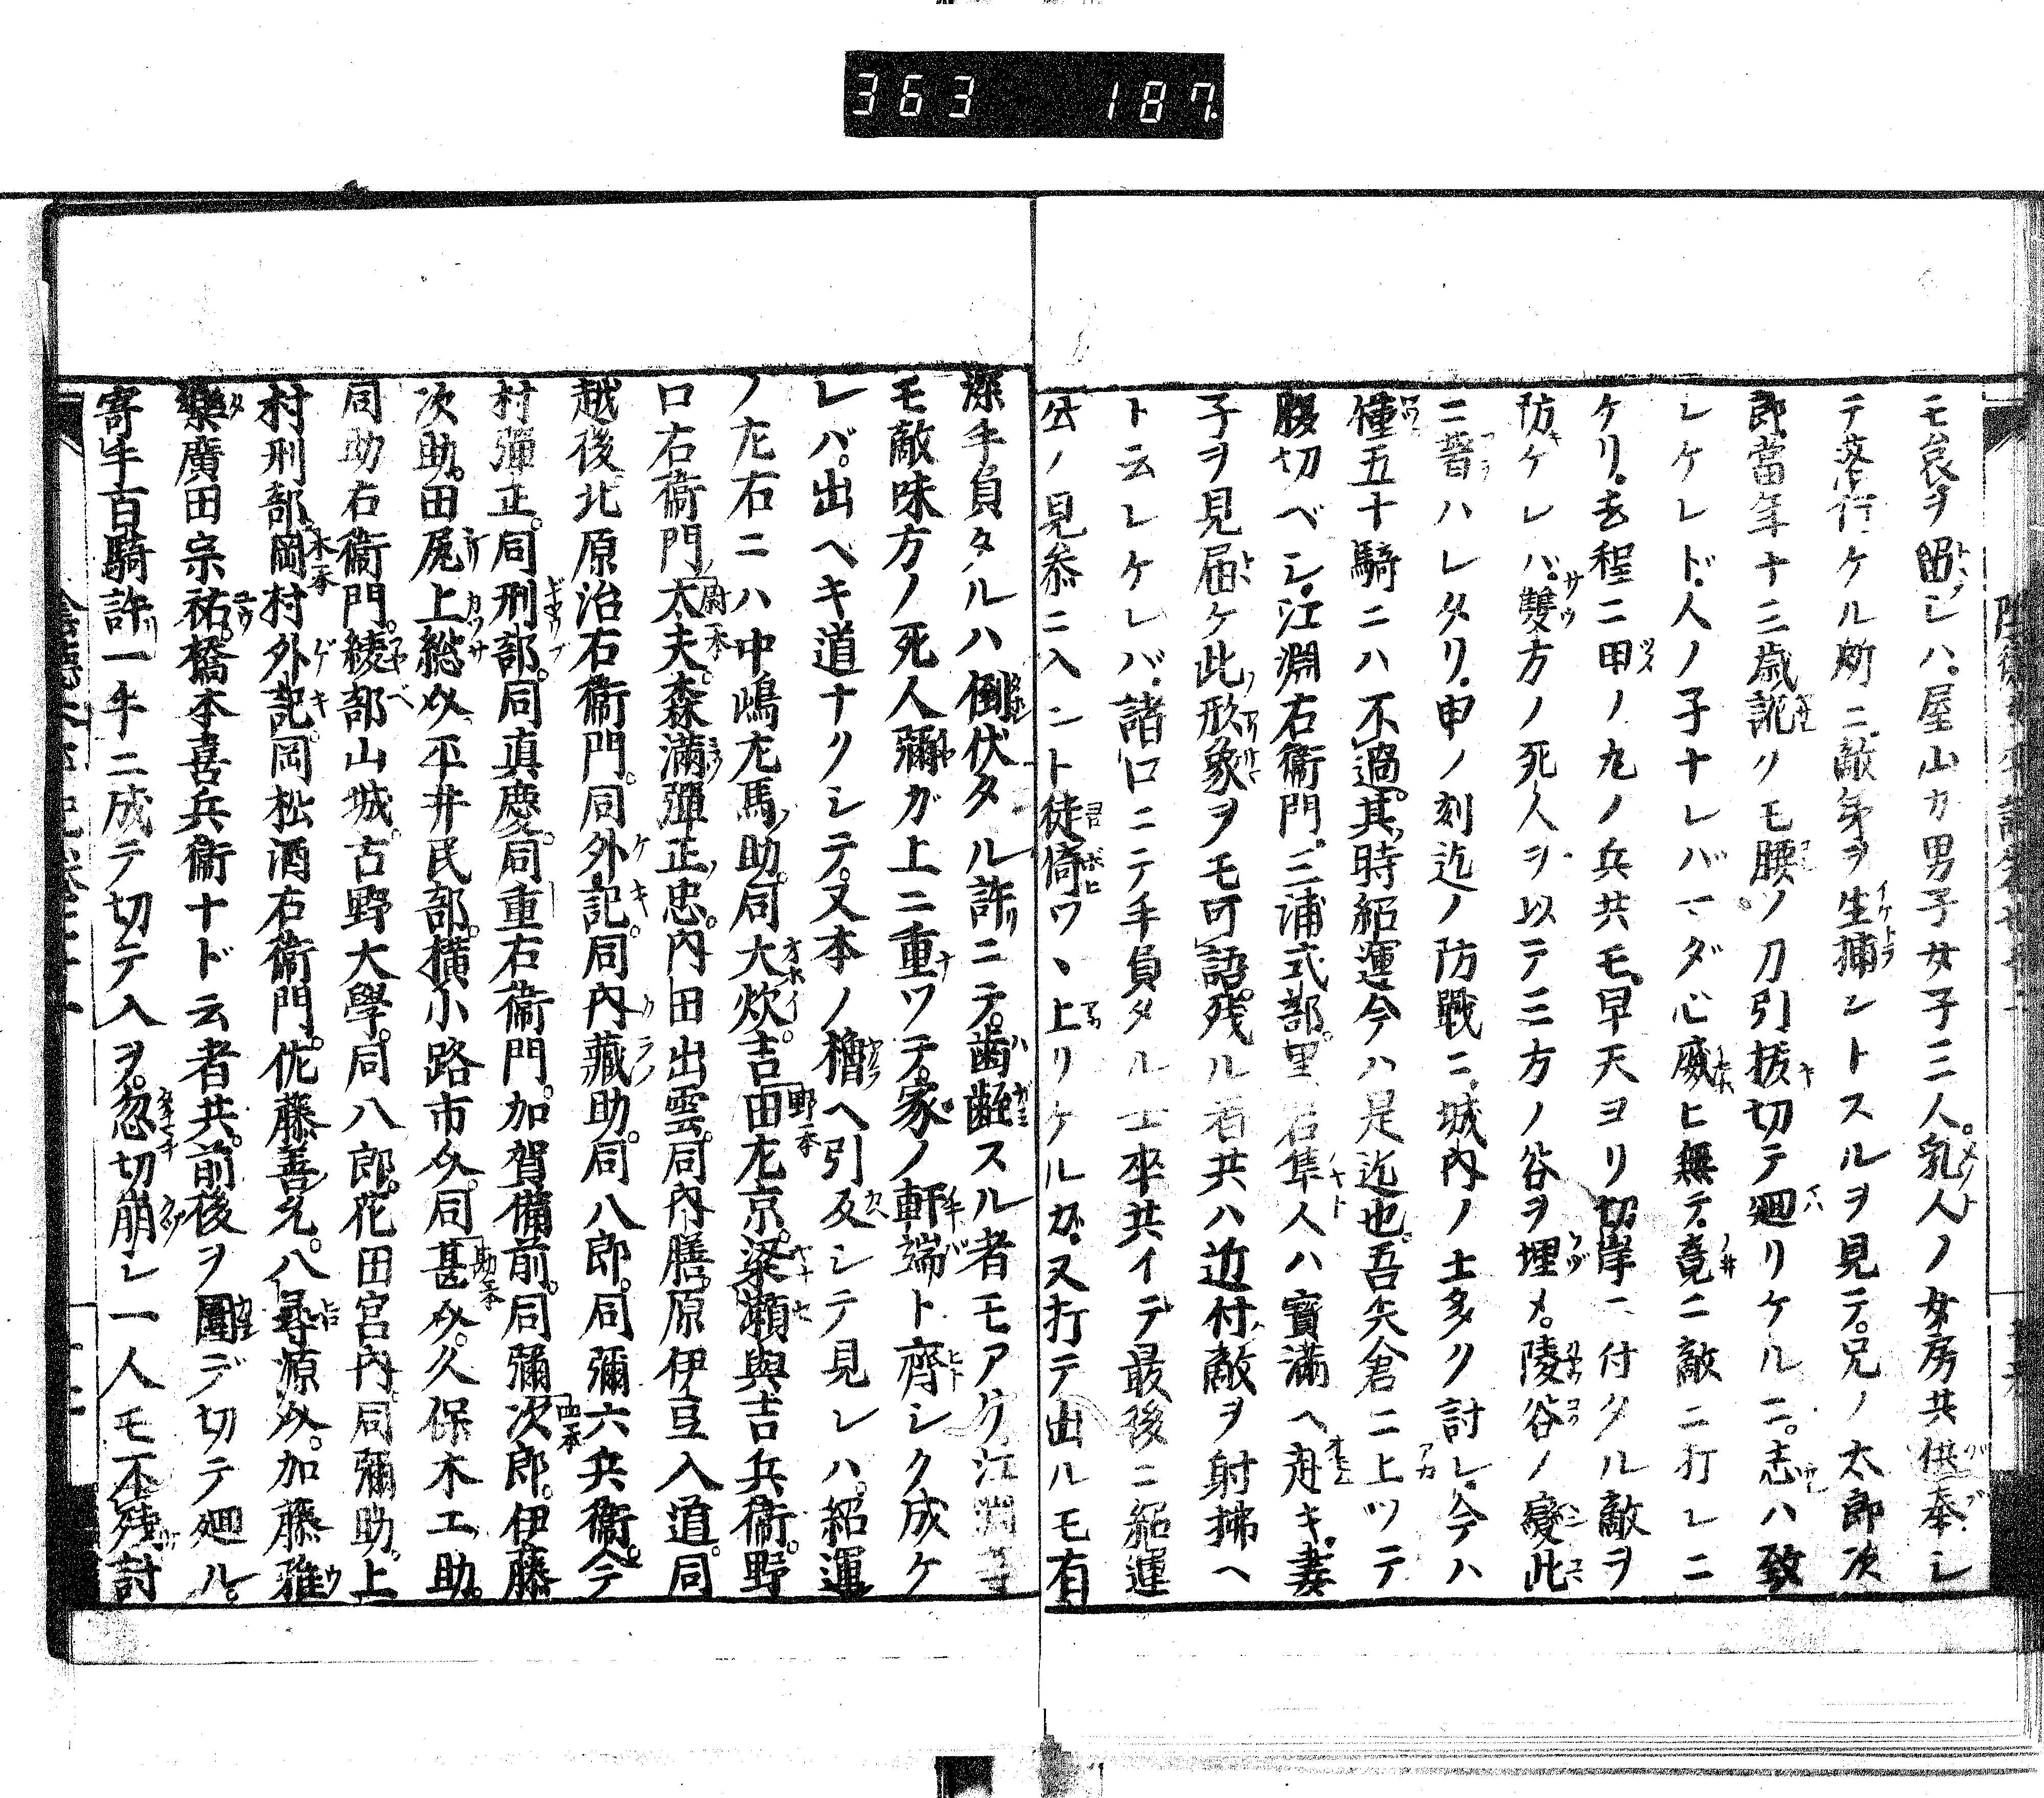 363 187
モ哀ヲ留シハ。屋山カ男子女子三人。乳人ノ女房共供奉シ
テ落行ケル所ニ敵弟ヲ生捕ントスルヲ見テ。兄ノ太郎次
郎當年十三歳訛リモ腰ノ刀引抜切テ廻リケルニ。志ハ致
レケレド。人ノ子ナレバマダ心威ヒ無テ。竟ニ敵ニ打レニ
ケリ。去程ニ甲ノ丸ノ兵共モ。早天ヨリ切岸ニ付タル敵ヲ
防ケレバ。雙方ノ死人ヲ以テ三方ノ谷ヲ埋メ。陵谷ノ變此
ニ著ハレタリ。申ノ刻迄ノ防戰ニ城内ノ士多ク討レ。今ハ
僅五十騎ニハ不過。其時紹運今ハ是迄也。吾矢倉ニ上ツテ
腹切ベシ。江淵右衞門。三浦式部。里石隼人ハ寳滿ヘ赴キ。妻
子ヲ見届ケ此形象ヲモ可語。残ル者共ハ近付敵ヲ射拂ヘ
ト云レケレバ。諸口ニテ手負タル士卒共イデ最後ニ紹運
公ノ見参ニ入ント徒倚ツヽ上リケルガ。又打テ出ルモ有
深手負タルハ倒伏タル許ニテ。歯齟スル者モアリ。江淵等
モ敵味方ノ死人彌ガ上ニ重ツテ。家ノ軒端ト齊シク成ケ
レバ。出ヘキ道ナクシテ。又本ノ櫓ヘ引反シテ見レハ。紹運
ノ左右ニハ中嶋左馬助。同大炊。吉田左京。梁瀬與吉兵衞。野
口右衞門太夫。森滿彈正忠。内田出雲。同内膳。原伊豆入道。同
越後北原治右衞門。同外記。同内藏助。同八郎。同彌六兵衞。今
村彈正。同刑部。同真慶。同重右衞門。加賀備前。同彌次郎。伊藤
次助。田尻上総介平井民部。横小路市介。同甚介。久保木工助。
同助右衞門。綾部山城。古野大學。同八郎。花田宮内同彌助。上
村刑部。岡村外記。岡松酒右衞門。佐藤善兄。八尋源介。加藤雅
樂廣田宗祐。橋本喜兵衞ナド云者共。前後ヲ圍デ切テ廻ル。
寄手百騎許一手ニ成テ切テ入ヲ。忽切崩シ一人モ不残討